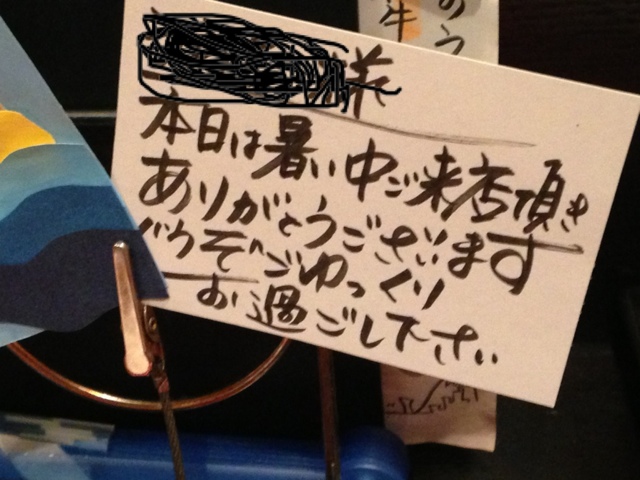 のう
牛
様
本日は暑い中ご来店頂き
ありがとうございます
どうぞごゆっくり
お過ごし下さい